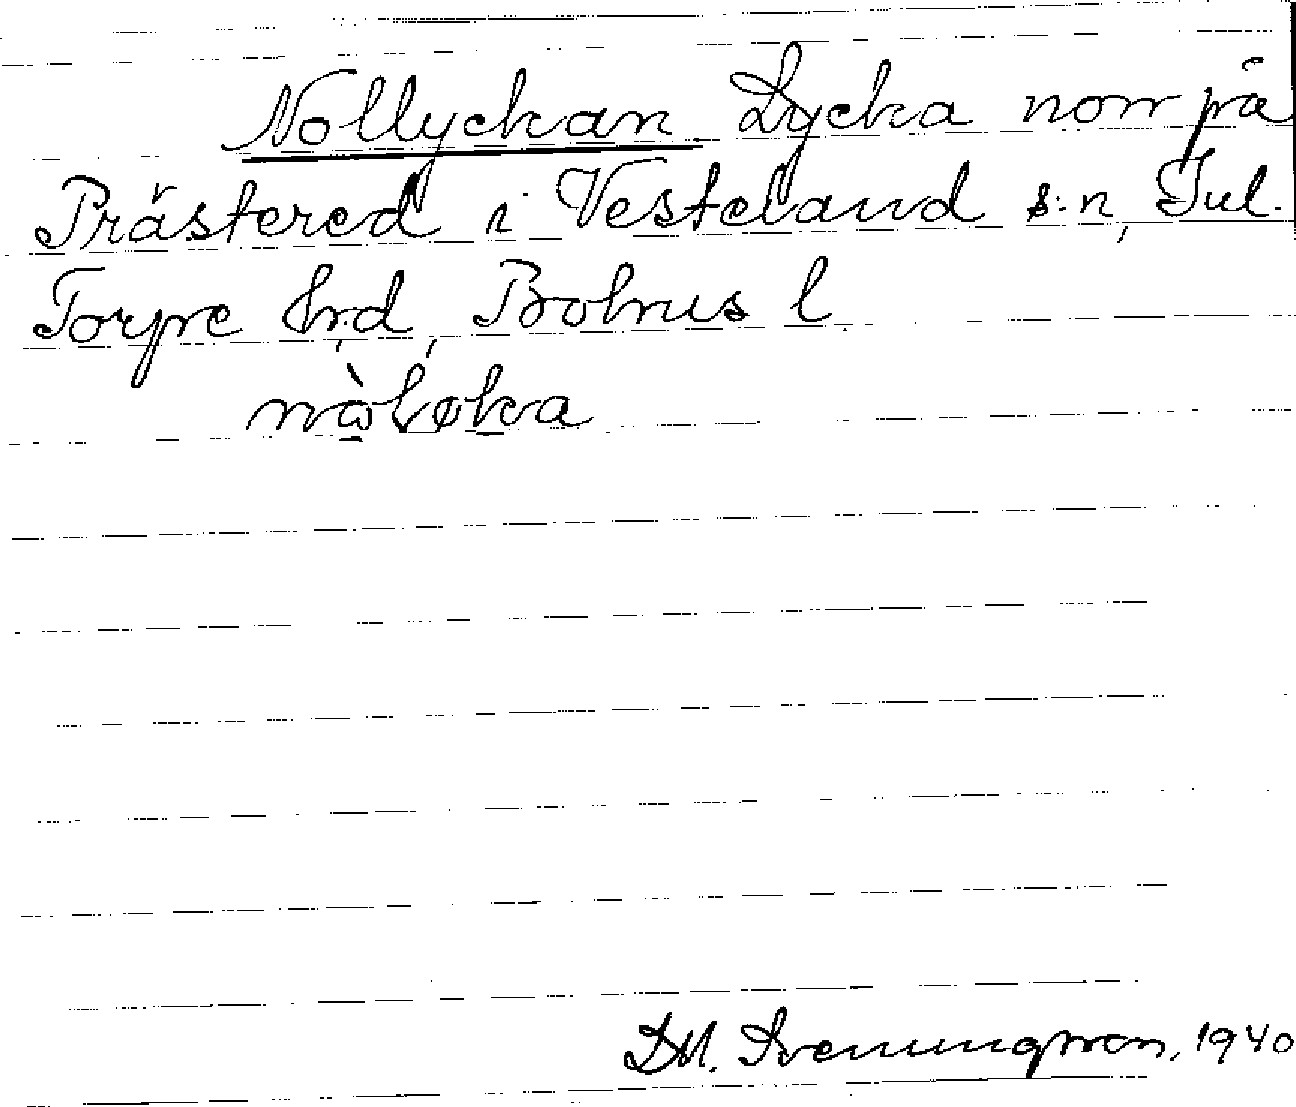 Nollyckan Lycka norr på
Prästered i Vesteland s:n, Jul.
Torpe hrd, Bohus l
D.M. Svenungsson, 1940